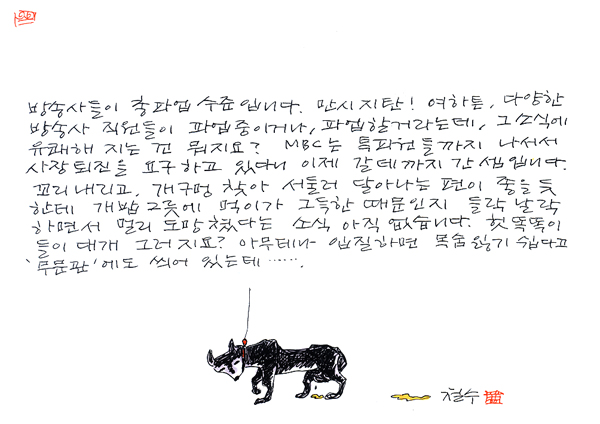 방송사들이 총파업 수준입니다. 만시지탄! 여하튼, 다양한
방송사 직원들이 파업중이거나, 파업할거라는데, 그 소식에
유쾌해 지는 건 뭐지요? MBC는 특파원들까지 나서서
사장퇴진을 요구하고 있다니 이제 갈데까지 간 셈입니다.
꼬리내리고, 개구멍 찾아 서둘러 달아나는 편이 좋을 듯
한데 개밥그릇에 먹이가 그득한 때문인지 들락 날락
하면서 멀리 도망쳤다는 소식 아직 없습니다. 헛똑똑이
들이 대개 그러지요? 아무데나 입질하면 목숨 잃기 쉽다고
'무문관'에도 씌어 있는데 ......
철수